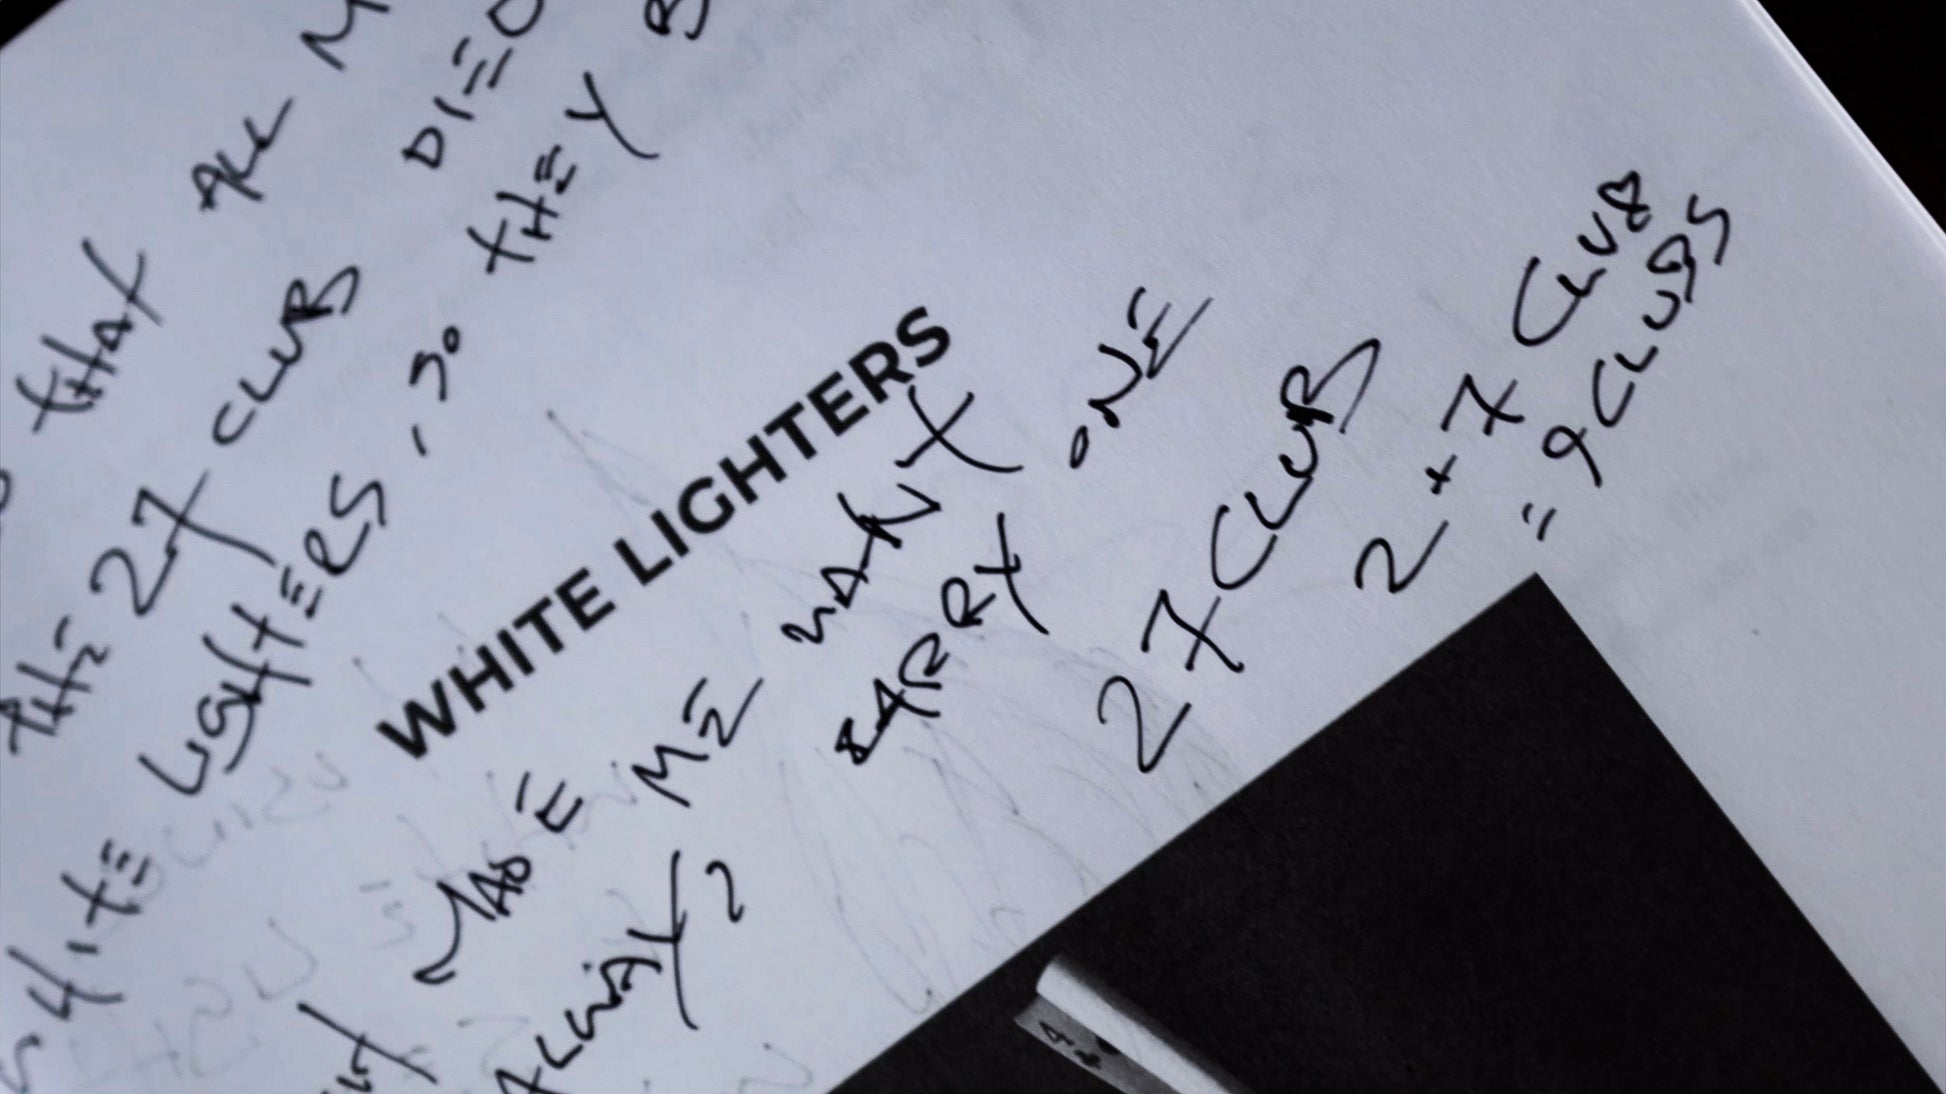 THAT ALL
THE 27 CLUB DIED
LIGHTERS, SO THEY
WHITE LIGHTERS
MADE ME WANT
CARRY ONE
ALWAY?
27 CLUB
2+7 CLUB
= 9 CLUBS